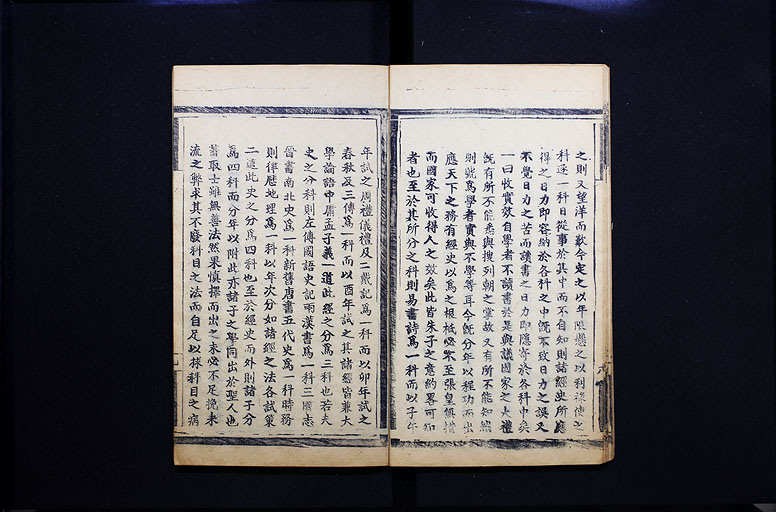 之則又望洋而歎今定之以年限懸之以利祿使之
科逐一科日從事於其中而不自知則諸經史所應
得之日力即容納於各科之中旣不致日力之誤又
不覺日力之苦而讀書之日力即應寄於各科中矣
一曰收實效自學者不讀書於是與議國家之大禮
旣有所不能悉與搜列朝之掌故又有所不能知然
則號爲學者實與不學等耳今旣分年以程功而出
應天下之務有經史以爲之根柢必不至張皇無措
而國家可收得人之效矣此皆朱子之意約畧可知
者也至於其所分之科則易書詩爲一科而以子午
年試之周禮儀禮及二戴記爲一科而以卯年試之
春秋及三傳爲一科而以酉年試之其諸經皆兼大
學論語中庸孟子義一道此經之分爲三科也若夫
史之分科則左傳國語史記兩漢書爲一科三國志
晉書南北史爲一科新舊唐書五代史爲一科時務
則律歷地理爲一科以年次分如諸經之法各試策
二道此史之分爲四科也至於經史而外則諸子分
爲四科而分年以附此亦諸子之學同出於聖人也
蓋取士雖無善法然果愼擇而出之未必不足挽末
流之弊求其不廢科目之法而自足以救科目之病